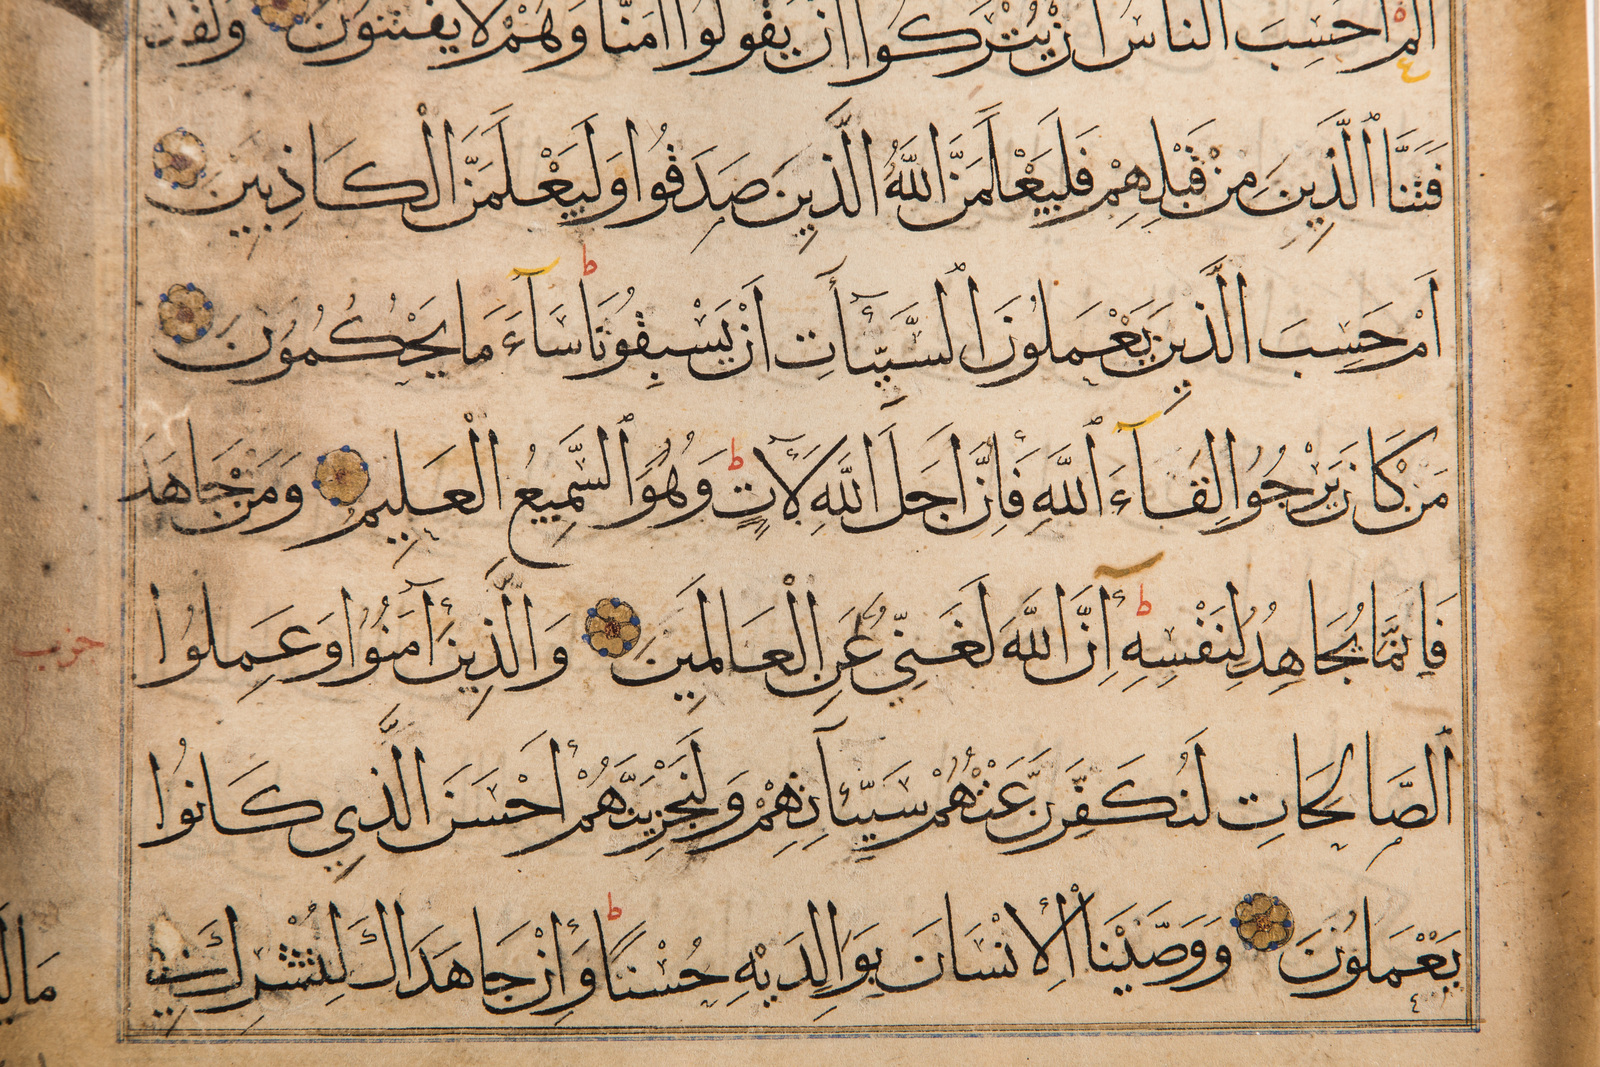 الم احسب الناس ان يتركوا ان يقولوا امنا وهم لا يفتنون ولقد
فَتَنَّا ٱلَّذِينَ مِنْ قَبْلِهِمْ فَلَيَعْلَمَنَّ اللَّهُ الَّذِينَ صَدَقُوا وَلَيَعْلَمَنَّ الْكَاذِبِينَ
اَمْ حَسِبَ الَّذِينَ يَعْمَلُونَ ٱلسَّيِّـَٔاتِ أَنْ يَسْبِقُونَا ط سَآءَ مَا يَحْكُمُونَ
مَنْ كَانَ يَرْجُوا لِقَآءَ ٱللَّهِ فَإِنَّ اَجَلَ اللَّهِ لَآتٍ ط وَهُوَ ٱلسَّمِيعُ الْعَلِيمُ وَمَنْ جَاهَدَ
فَاِنَّمَا يُجَاهِدُ لِنَفْسِهِ ط اِنَّ اللَّهَ لَغَنِيٌّ عَنِ الْعَالَمِينَ وَالَّذِينَ اٰمَنُوا وَعَمِلُوا
حزب
ٱلصَّالِحَاتِ لَنُكَفِّرَنَّ عَنْهُمْ سَيِّـَٔاتِهِمْ وَلَنَجْزِيَنَّهُمْ أَحْسَنَ الَّذِي كَانُوا
يَعْمَلُونَ وَوَصَّيْنَا ٱلْأِنْسَانَ بِوَالِدَيْهِ حُسْنًا ط وَإِنْ جَاهَدَاكَ لِتُشْرِكَ بِي